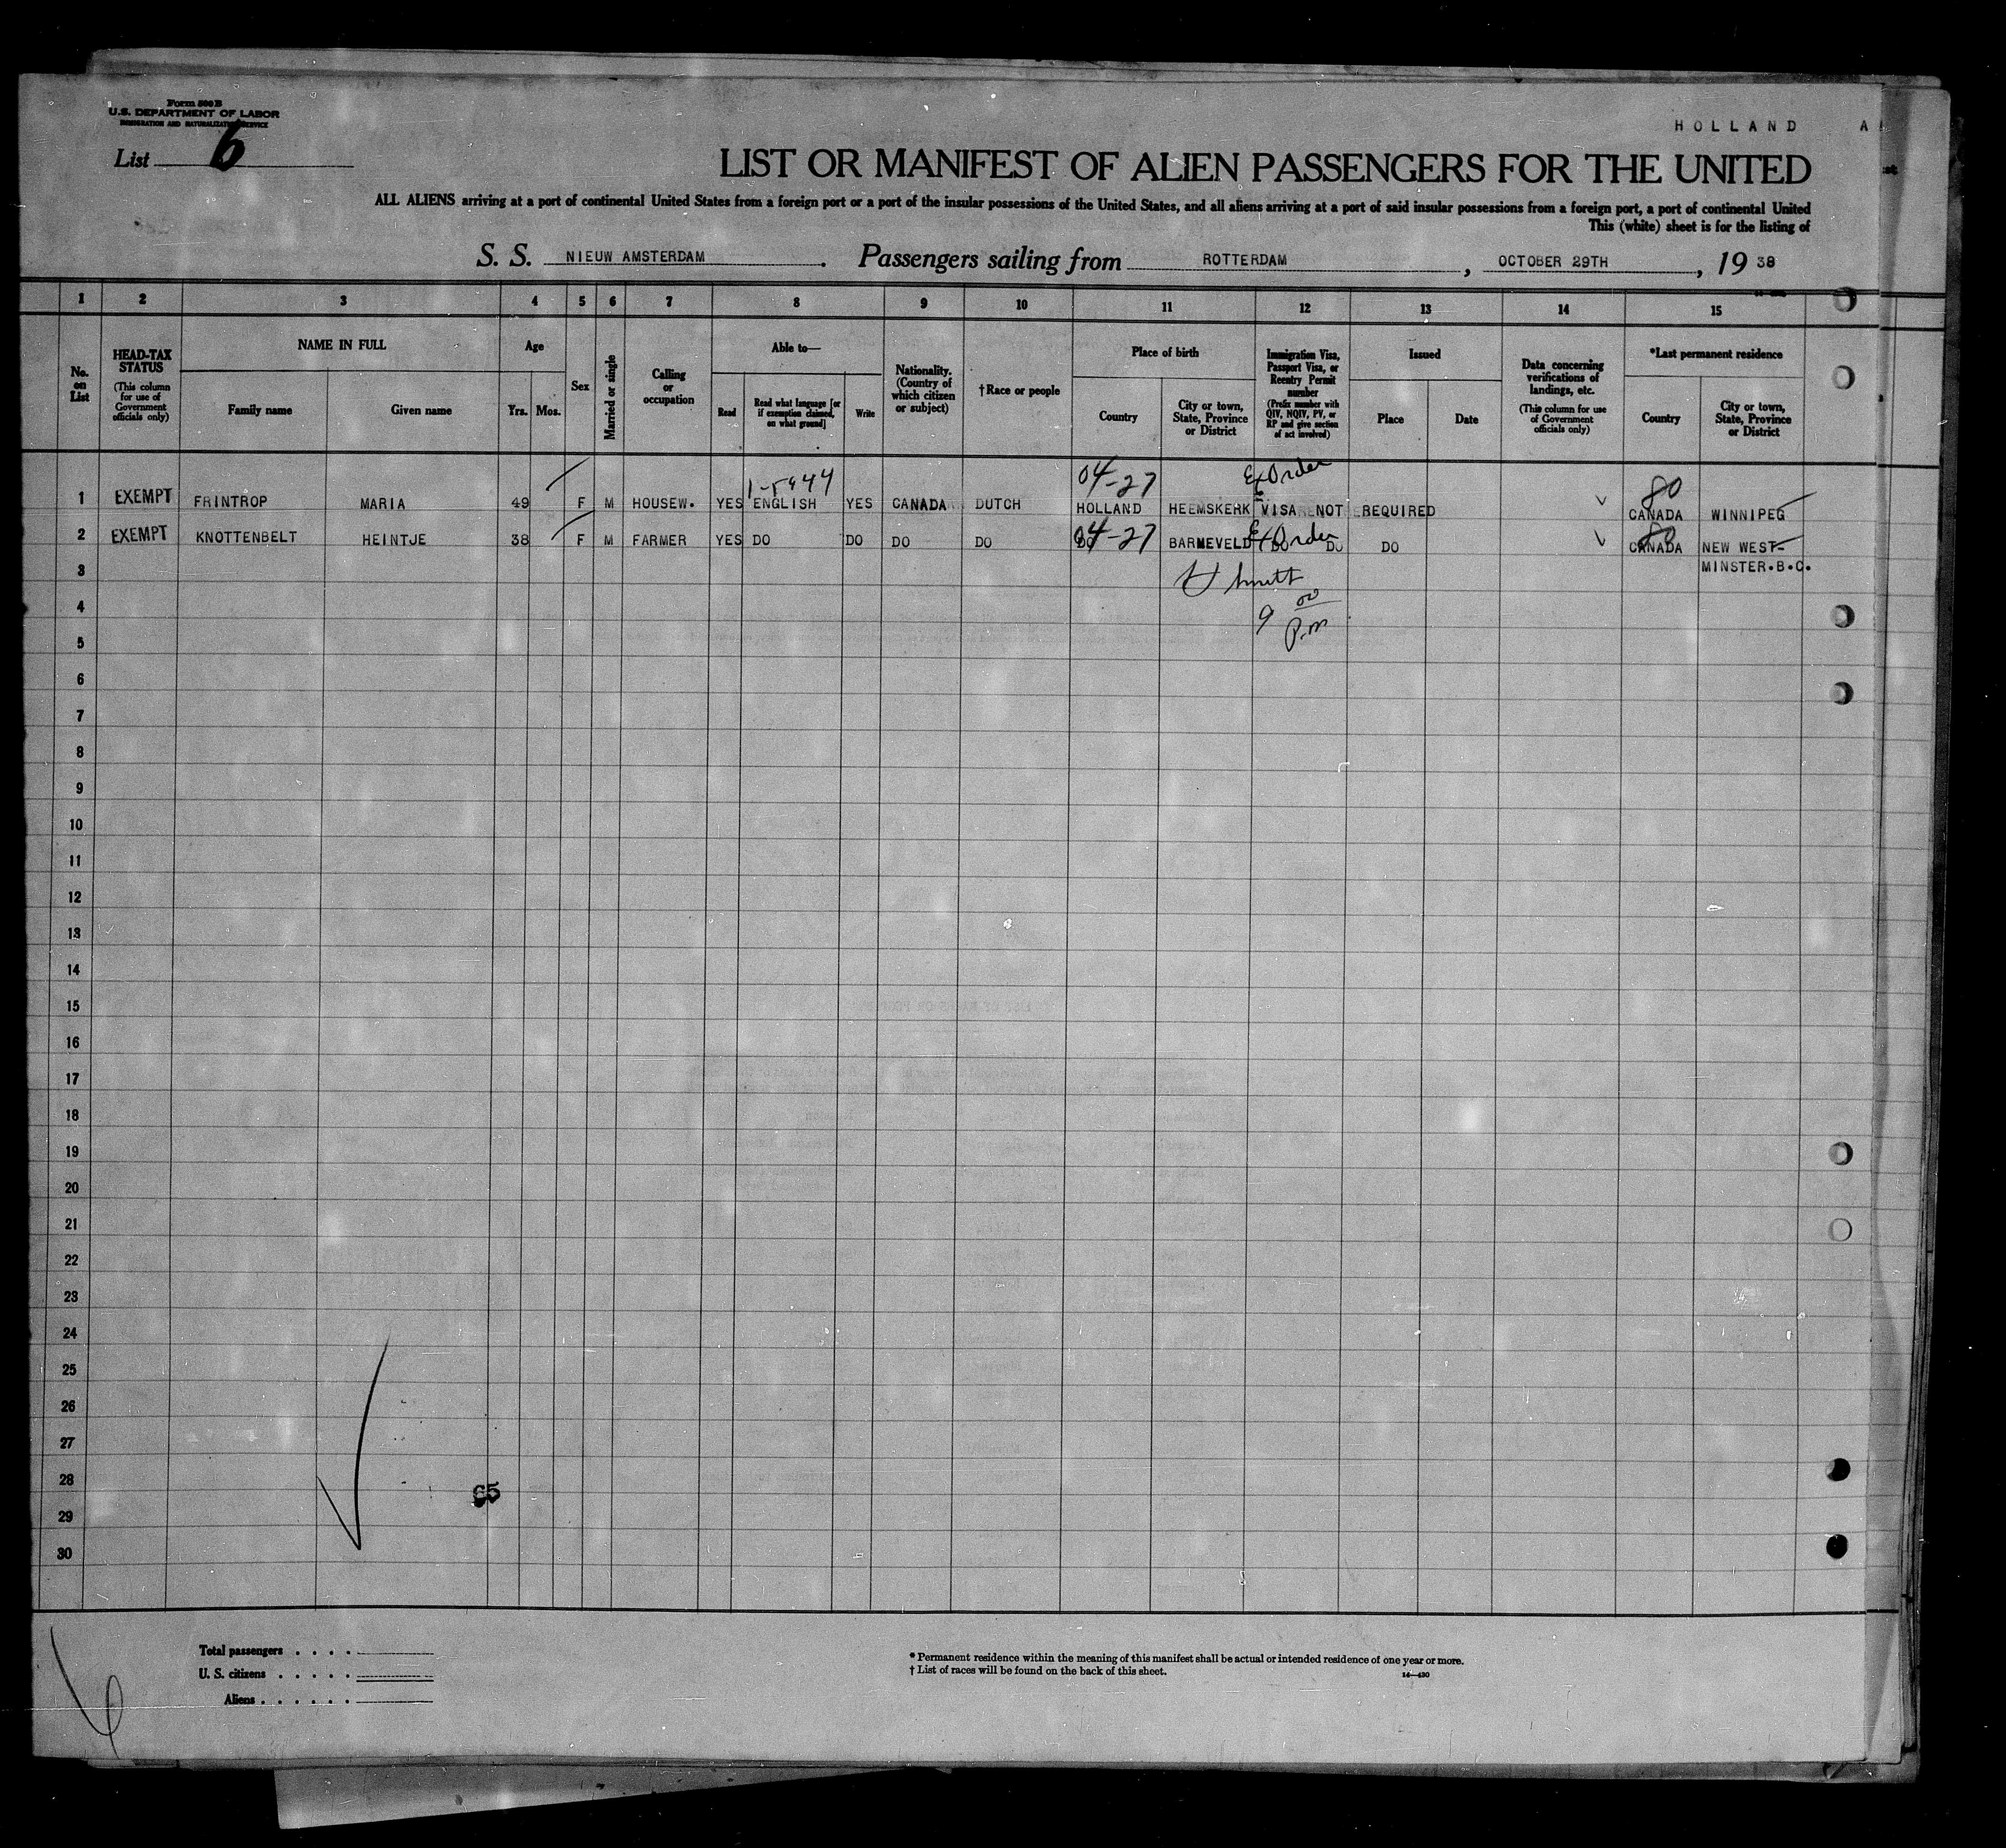 Form 500 B
U.S. DEPARTMENT OF LABOR
IMMIGRATION AND NATURALIZATION SERVICE
HOLLAND A
List 6
LIST OR MANIFEST OF ALIEN PASSENGERS FOR THE UNITED
ALL ALIENS arriving at a port of continental United States from a foreign port or a port of the insular possessions of the United States, and all aliens arriving at a port of said insular possessions from a foreign port, a port of continental United
This (white) sheet is for the listing of
S. S. NIEUW AMSTERDAM . Passengers sailing from ROTTERDAM , OCTOBER 29TH , 19 38
1 2 3 4 5 6 7 8 9 10 11 12 13 14 15
No. on List
HEAD-TAX STATUS (This column for use of Government officials only)
NAME IN FULL
Family name Given name
Age
Yrs. Mos.
Sex
Married or single
Calling or occupation
Able to—
Read Read what language [or if exemption claimed, on what ground] Write
Nationality. (Country of which citizen or subject)
†Race or people
Place of birth
Country City or town, State, Province or District
Immigration Visa, Passport Visa, or Reentry Permit number (Prefix number with QIV, NQIV, PV, or RP and give section of act involved)
Issued
Place Date
Data concerning verifications of landings, etc. (This column for use of Government officials only)
*Last permanent residence
Country City or town, State, Province or District
04-27 Ex Order 80
1 EXEMPT FRINTROP MARIA 49 F M HOUSEW. YES ENGLISH YES CANADA DUTCH HOLLAND HEEMSKERK VISA NOT REQUIRED CANADA WINNIPEG
2 EXEMPT KNOTTENBELT HEINTJE 38 F M FARMER YES DO DO DO DO 04-27 BARNEVELD Ex Order DO DO DO 80 CANADA NEW WEST-
MINSTER.B.C.
3
4 9 00
5 P.m
6
7
8
9
10
11
12
13
14
15
16
17
18
19
20
21
22
23
24
25
26
27
28
65
29
30
Total passengers . . . .
U. S. citizens . . . . .
Aliens . . . . . .
* Permanent residence within the meaning of this manifest shall be actual or intended residence of one year or more.
† List of races will be found on the back of this sheet.
14—430